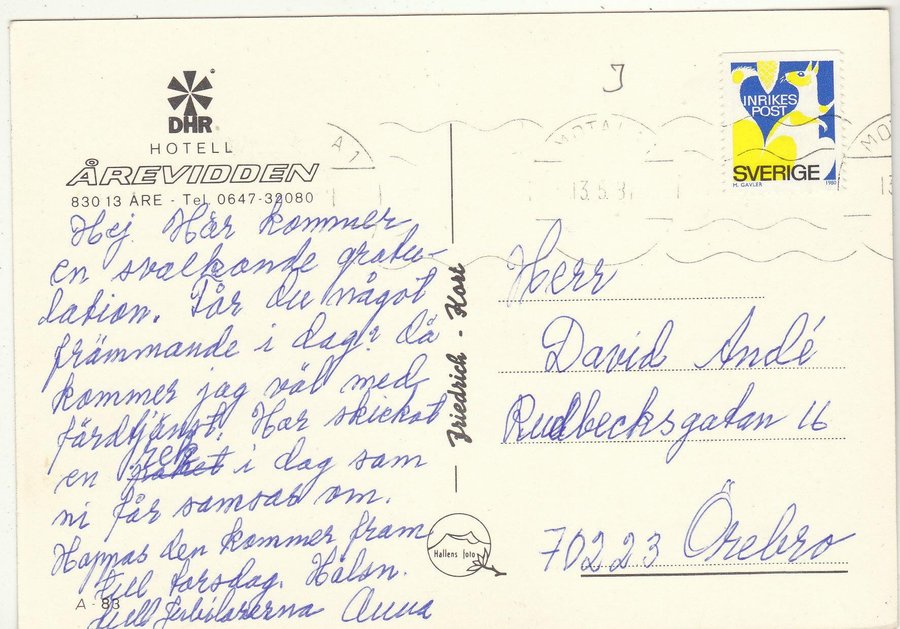 DHR
HOTELL
ÅREVIDDEN
830 13 ÅRE - Tel. 0647-32080
Hej. Här kommer
en svalkande gratu-
lation. Får du något
främmande i dag? då
kommer jag väl med
färdtjänst. Har skickat
rek
en paket i dag som
ni får samsas om.
Hoppas den kommer fram
till torsdag. Hälsn.
A - 83
till jubilarerna Anna
Friedrich - Kort
Hallens foto
J
A 1
MOTALA
13.5.8
MO
13
INRIKES
POST
SVERIGE
M. GAVLER 1980
Herr
David Andé
Rudbecksgatan 16
70223 Örebro